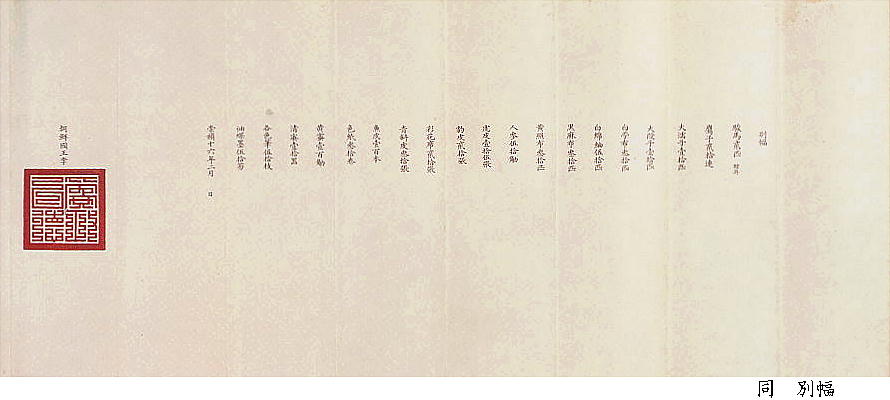 別幅
駿馬貳匹 鞍具
鷹子貳拾連
大襦子壹拾匹
大段子壹拾匹
白苧布叄拾匹
白綿紬伍拾匹
黑麻布叄拾匹
黃照布叄拾匹
人參伍拾觔
虎皮壹拾伍張
豹皮貳拾張
彩花席貳拾張
青斜皮叄拾張
魚皮壹百本
色紙叄拾卷
黃蜜壹百觔
清蜜壹拾器
各色筆伍拾枝
油煤墨伍拾笏
崇禎十六年二月 日
朝鮮國王李
同 別幅